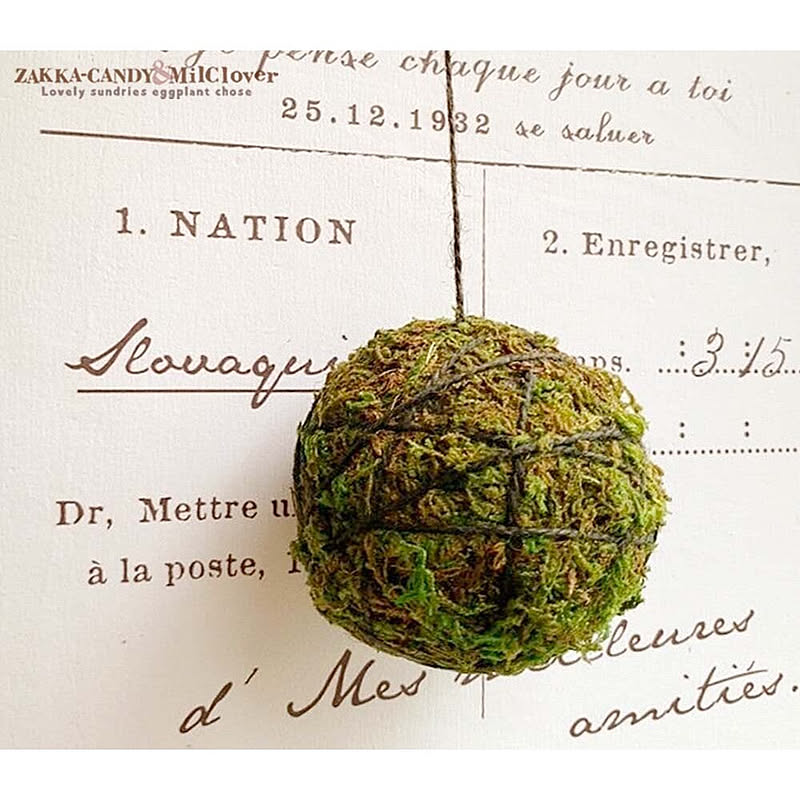 ZAKKA-CANDY&MilClover
Lovely sundries eggplant chose
pense chaque jour a toi
25.12.1932 se saluer
1. NATION
2. Enregistrer,
Slovaqui
mps. ....:3.:15...
: :
Dr, Mettre u
à la poste, 1
d' Mes meilleures
amitiés.